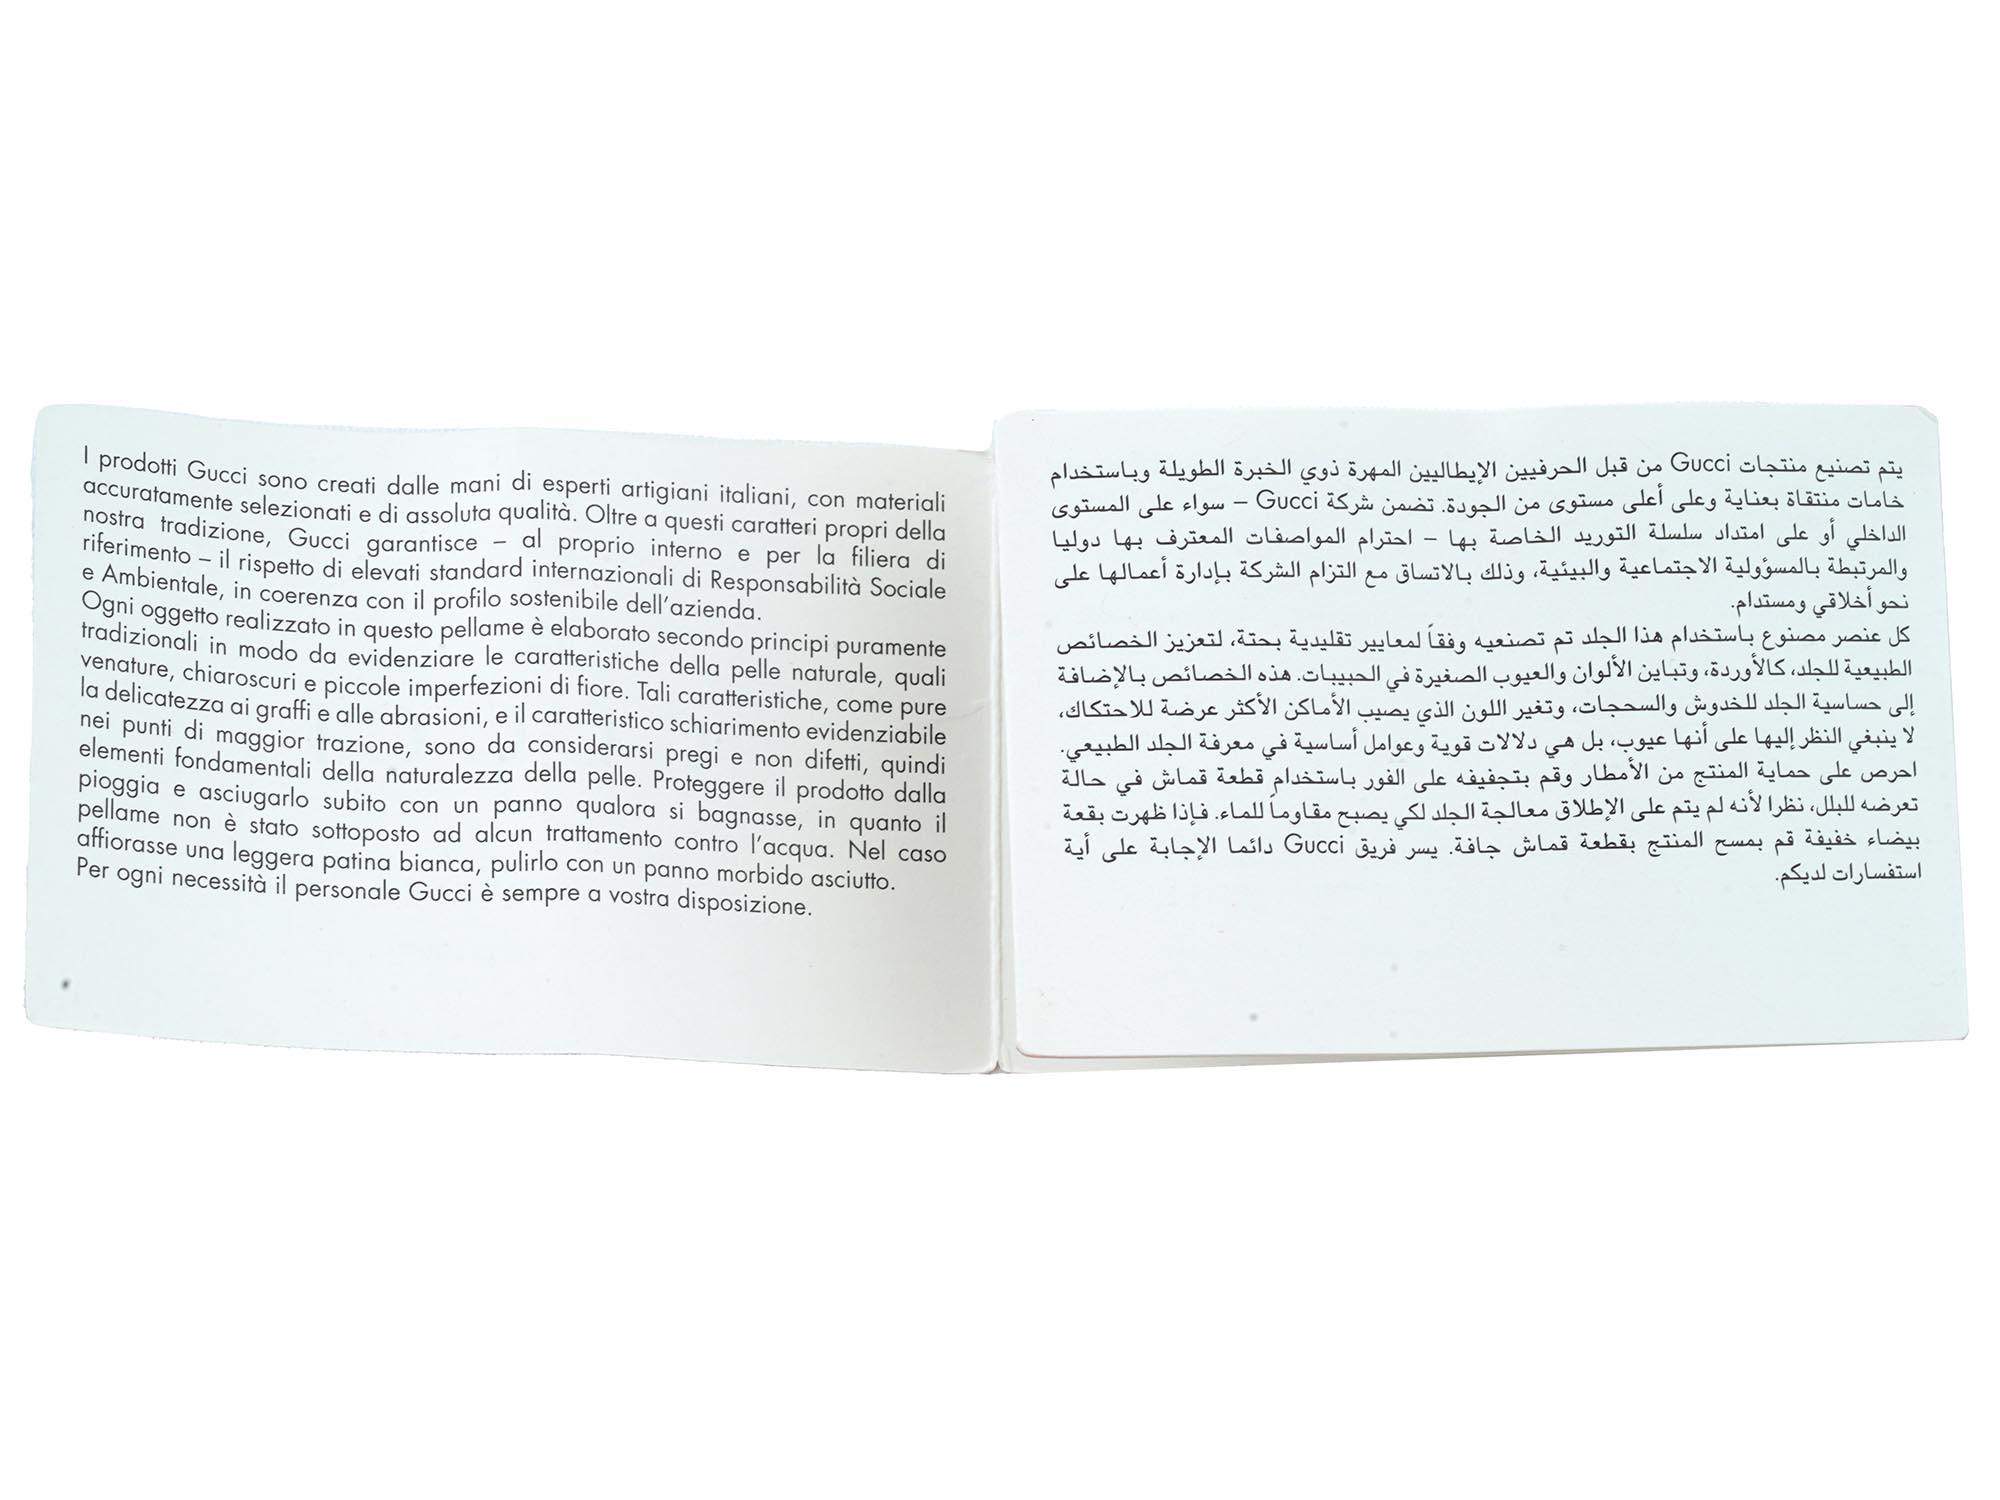 I prodotti Gucci sono creati dalle mani di esperti artigiani italiani, con materiali
accuratamente selezionati e di assoluta qualità. Oltre a questi caratteri propri della
nostra tradizione, Gucci garantisce – al proprio interno e per la filiera di
riferimento – il rispetto di elevati standard internazionali di Responsabilità Sociale
e Ambientale, in coerenza con il profilo sostenibile dell'azienda.
Ogni oggetto realizzato in questo pellame è elaborato secondo principi puramente
tradizionali in modo da evidenziare le caratteristiche della pelle naturale, quali
venature, chiaroscuri e piccole imperfezioni di fiore. Tali caratteristiche, come pure
la delicatezza ai graffi e alle abrasioni, e il caratteristico schiarimento evidenziabile
nei punti di maggior trazione, sono da considerarsi pregi e non difetti, quindi
elementi fondamentali della naturalezza della pelle. Proteggere il prodotto dalla
pioggia e asciugarlo subito con un panno qualora si bagnasse, in quanto il
pellame non è stato sottoposto ad alcun trattamento contro l'acqua. Nel caso
affiorasse una leggera patina bianca, pulirlo con un panno morbido asciutto.
Per ogni necessità il personale Gucci è sempre a vostra disposizione.
يتم تصنيع منتجات Gucci من قبل الحرفيين الإيطاليين المهرة ذوي الخبرة الطويلة وباستخدام
خامات منتقاة بعناية وعلى أعلى مستوى من الجودة. تضمن شركة Gucci – سواء على المستوى
الداخلي أو على امتداد سلسلة التوريد الخاصة بها – احترام المواصفات المعترف بها دوليا
والمرتبطة بالمسؤولية الاجتماعية والبيئية، وذلك بالاتساق مع التزام الشركة بإدارة أعمالها على
نحو أخلاقي ومستدام.
كل عنصر مصنوع باستخدام هذا الجلد تم تصنعيه وفقاً لمعايير تقليدية بحتة، لتعزيز الخصائص
الطبيعية للجلد، كالأوردة، وتباين الألوان والعيوب الصغيرة في الحبيبات. هذه الخصائص بالإضافة
إلى حساسية الجلد للخدوش والسحجات، وتغير اللون الذي يصيب الأماكن الأكثر عرضة للاحتكاك،
لا ينبغي النظر إليها على أنها عيوب، بل هي دلالات قوية وعوامل أساسية في معرفة الجلد الطبيعي.
احرص على حماية المنتج من الأمطار وقم بتجفيفه على الفور باستخدام قطعة قماش في حالة
تعرضه للبلل، نظرا لأنه لم يتم على الإطلاق معالجة الجلد لكي يصبح مقاوماً للماء. فإذا ظهرت بقعة
بيضاء خفيفة قم بمسح المنتج بقطعة قماش جافة. يسر فريق Gucci دائما الإجابة على أية
استفسارات لديكم.